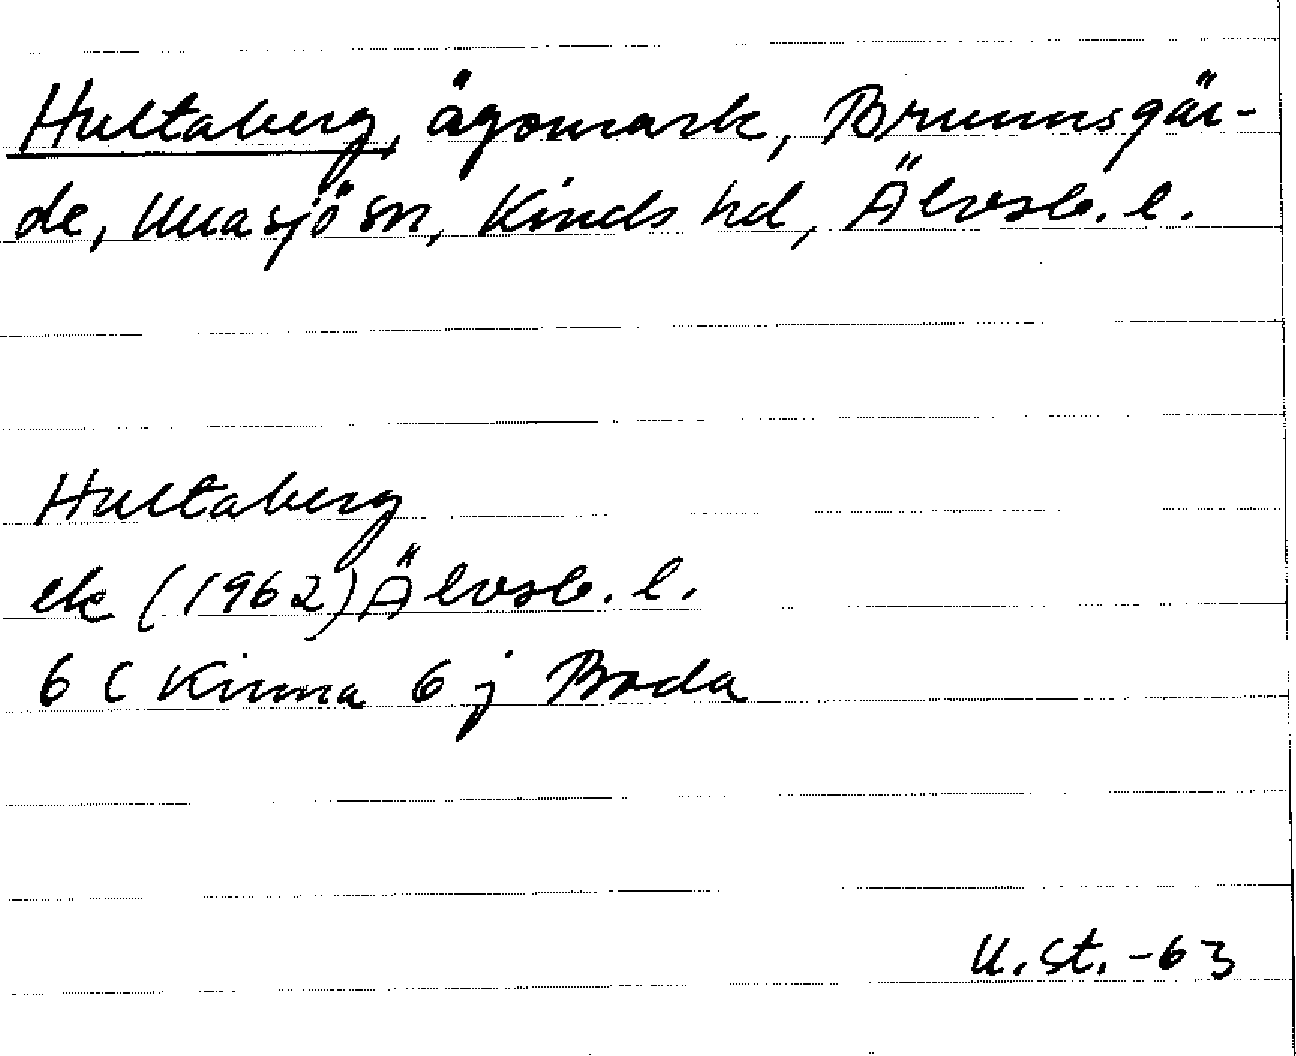 Hultaberg, ägomark, Brunnsgär-
de, Ullasjö sn, Kinds hd, Älvsb. l.
Hultaberg
ek (1962) Älvsb. l.
6 C Kinna 6 j Boda
U. St. -63